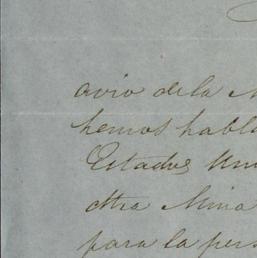 avio de la
hemos habl
Estados Uni
otra Mina
para la pers